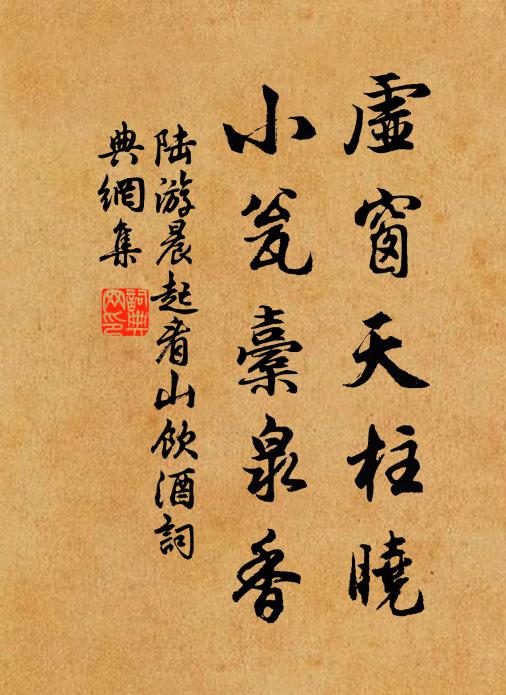 虛窗天柱曉
小瓮橐泉香
陆游晨起看山飲酒詞
典網集
詞典
网印